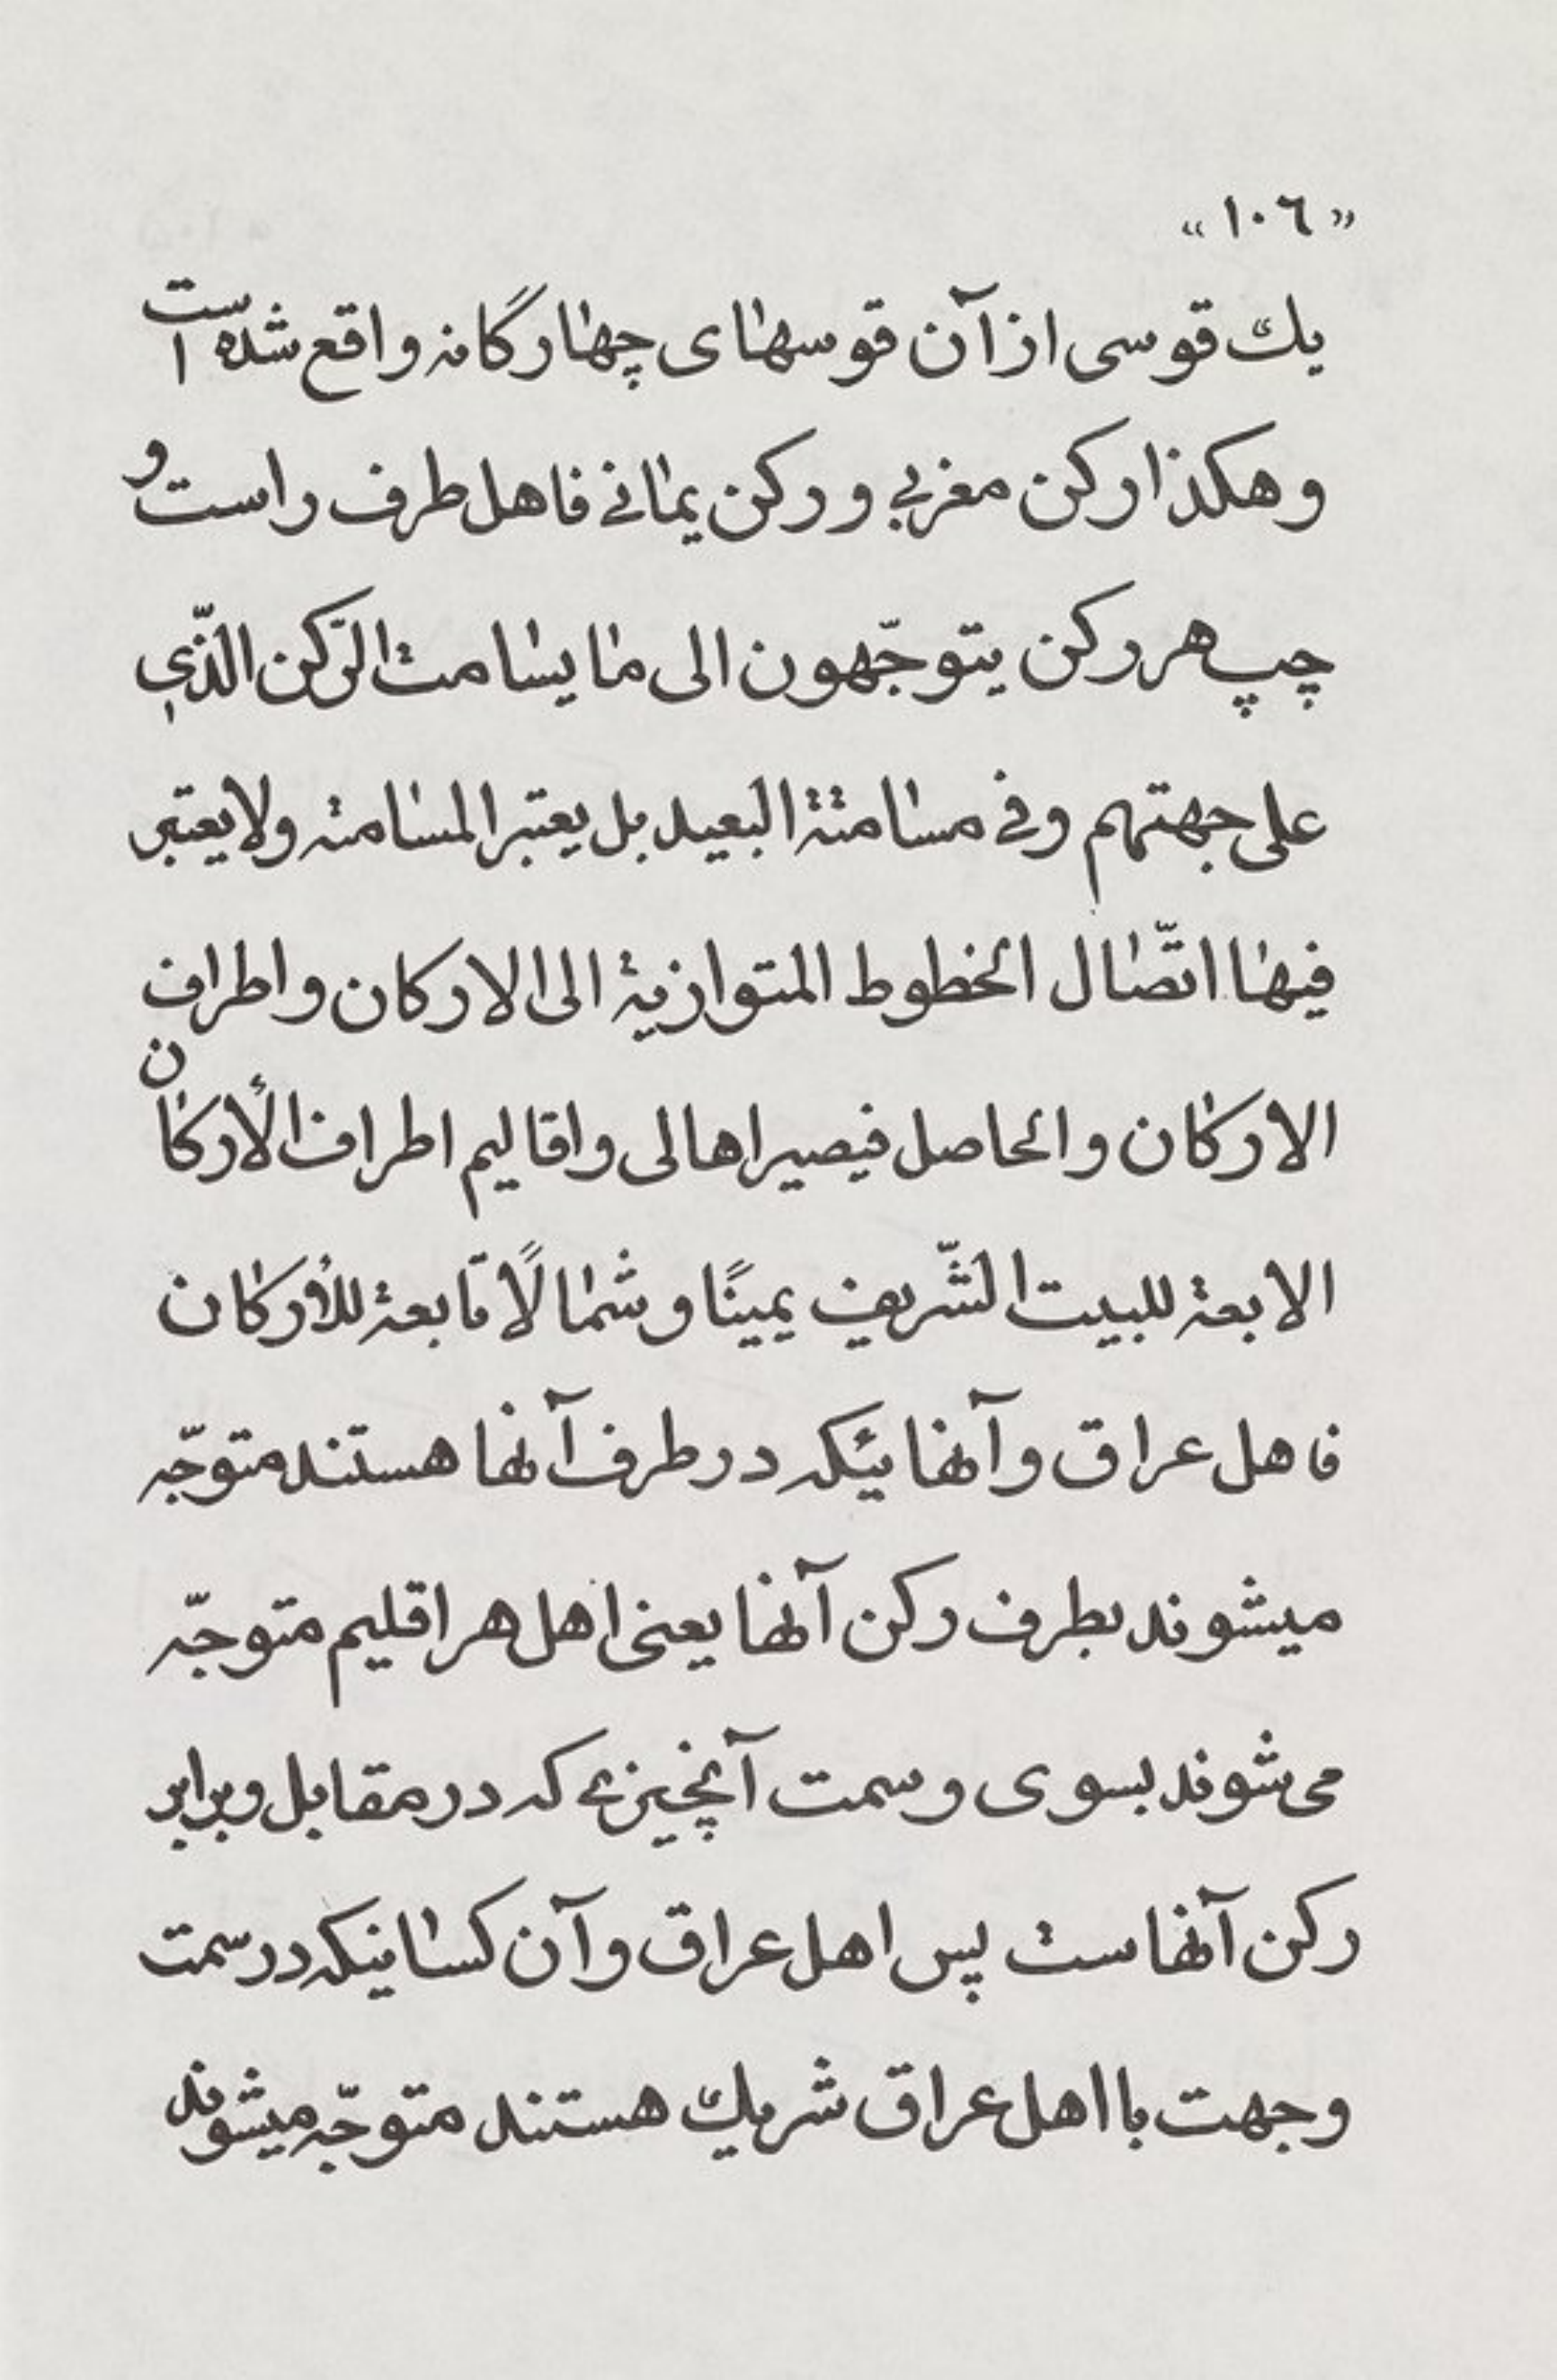 « ١٠٦ »
يك قوسى از آن قوسهاى چهارگانه واقع شده است
و هكذا ركن مغربي و ركن يماني فاهل طرف راست و
چپ هر ركن يتوجّهون الى ما يسامت الرّكن الّذي
على جهتهم وفي مسامتة البعيد بل يعتبر المسامته ولا يعتبر
فيها اتّصال الخطوط المتوازية الى الاركان و اطراف
الاركان و الحاصل فيصير اهالى و اقاليم اطراف الأركان
الابعة للبيت الشّريف يمينًا و شمالًا تابعة للأركان
فاهل عراق و آنهائيكه در طرف آنها هستند متوجّه
ميشوند بطرف ركن آنها يعنى اهل هر اقليم متوجّه
مى شوند بسوى و سمت آنچيزى كه در مقابل و برابر
ركن آنهاست پس اهل عراق و آن كسانيكه در سمت
و جهت با اهل عراق شريك هستند متوجّه ميشوند